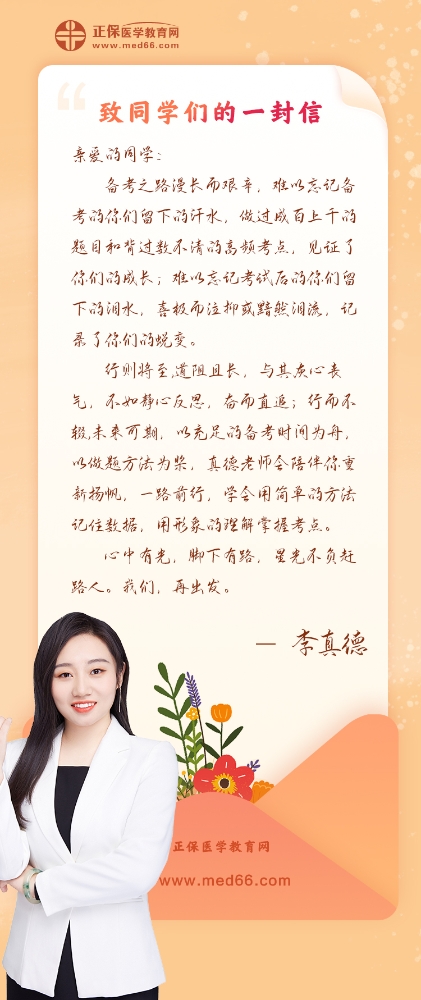 正保医学教育网
www.med66.com
致同学们的一封信
亲爱的同学：
备考之路漫长而艰辛，难以忘记备
考的你们留下的汗水，做过成百上千的
题目和背过数不清的高频考点，见证了
你们的成长；难以忘记考试后的你们留
下的泪水，喜极而泣抑或黯然泪流，记
录了你们的蜕变。
行则将至，道阻且长，与其灰心丧
气，不如静心反思，奋而直追；行而不
辍，未来可期，以充足的备考时间为舟，
以做题方法为桨，真德老师会陪伴你重
新扬帆，一路前行，学会用简单的方法
记住数据，用形象的理解掌握考点。
心中有光，脚下有路，星光不负赶
路人。我们，再出发。
— 李真德
正保医学教育网
www.med66.com